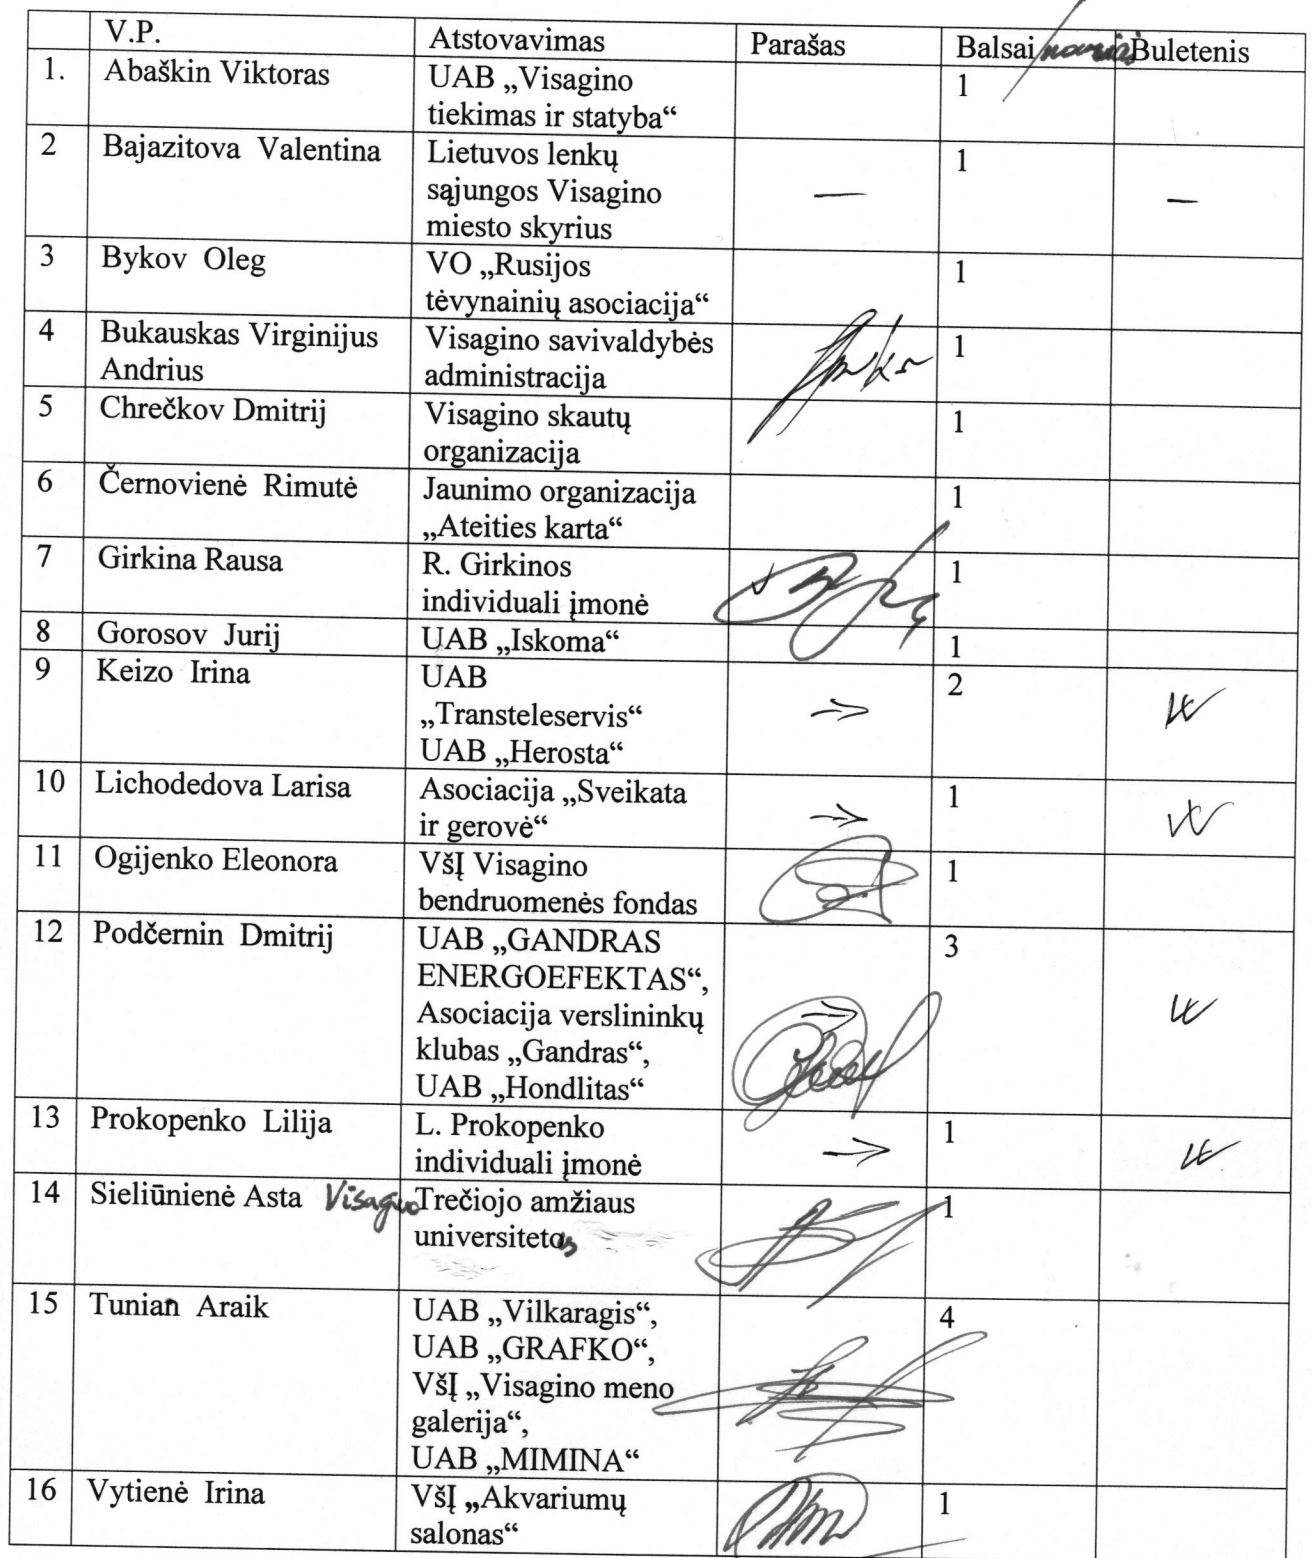 V.P. Atstovavimas Parašas Balsai Buletenis
1. Abaškin Viktoras UAB „Visagino 1
tiekimas ir statyba“
2 Bajazitova Valentina Lietuvos lenkų 1
sąjungos Visagino — —
miesto skyrius
3 Bykov Oleg VO „Rusijos 1
tėvynainių asociacija“
4 Bukauskas Virginijus Visagino savivaldybės 1
Andrius administracija
5 Chrečkov Dmitrij Visagino skautų 1
organizacija
6 Černovienė Rimutė Jaunimo organizacija 1
„Ateities karta“
7 Girkina Rausa R. Girkinos 1
individuali įmonė
8 Gorosov Jurij UAB „Iskoma“ 1
9 Keizo Irina UAB 2
„Transteleservis“
UAB „Herosta“
10 Lichodedova Larisa Asociacija „Sveikata 1
ir gerovė“
11 Ogijenko Eleonora VšĮ Visagino 1
bendruomenės fondas
12 Podčernin Dmitrij UAB „GANDRAS 3
ENERGOEFEKTAS“,
Asociacija verslininkų
klubas „Gandras“,
UAB „Hondlitas“
13 Prokopenko Lilija L. Prokopenko 1
individuali įmonė
14 Sieliūnienė Asta Visagino Trečiojo amžiaus 1
universitetas
15 Tunian Araik UAB „Vilkaragis“, 4
UAB „GRAFKO“,
VšĮ „Visagino meno
galerija“,
UAB „MIMINA“
16 Vytienė Irina VšĮ „Akvariumų 1
salonas“